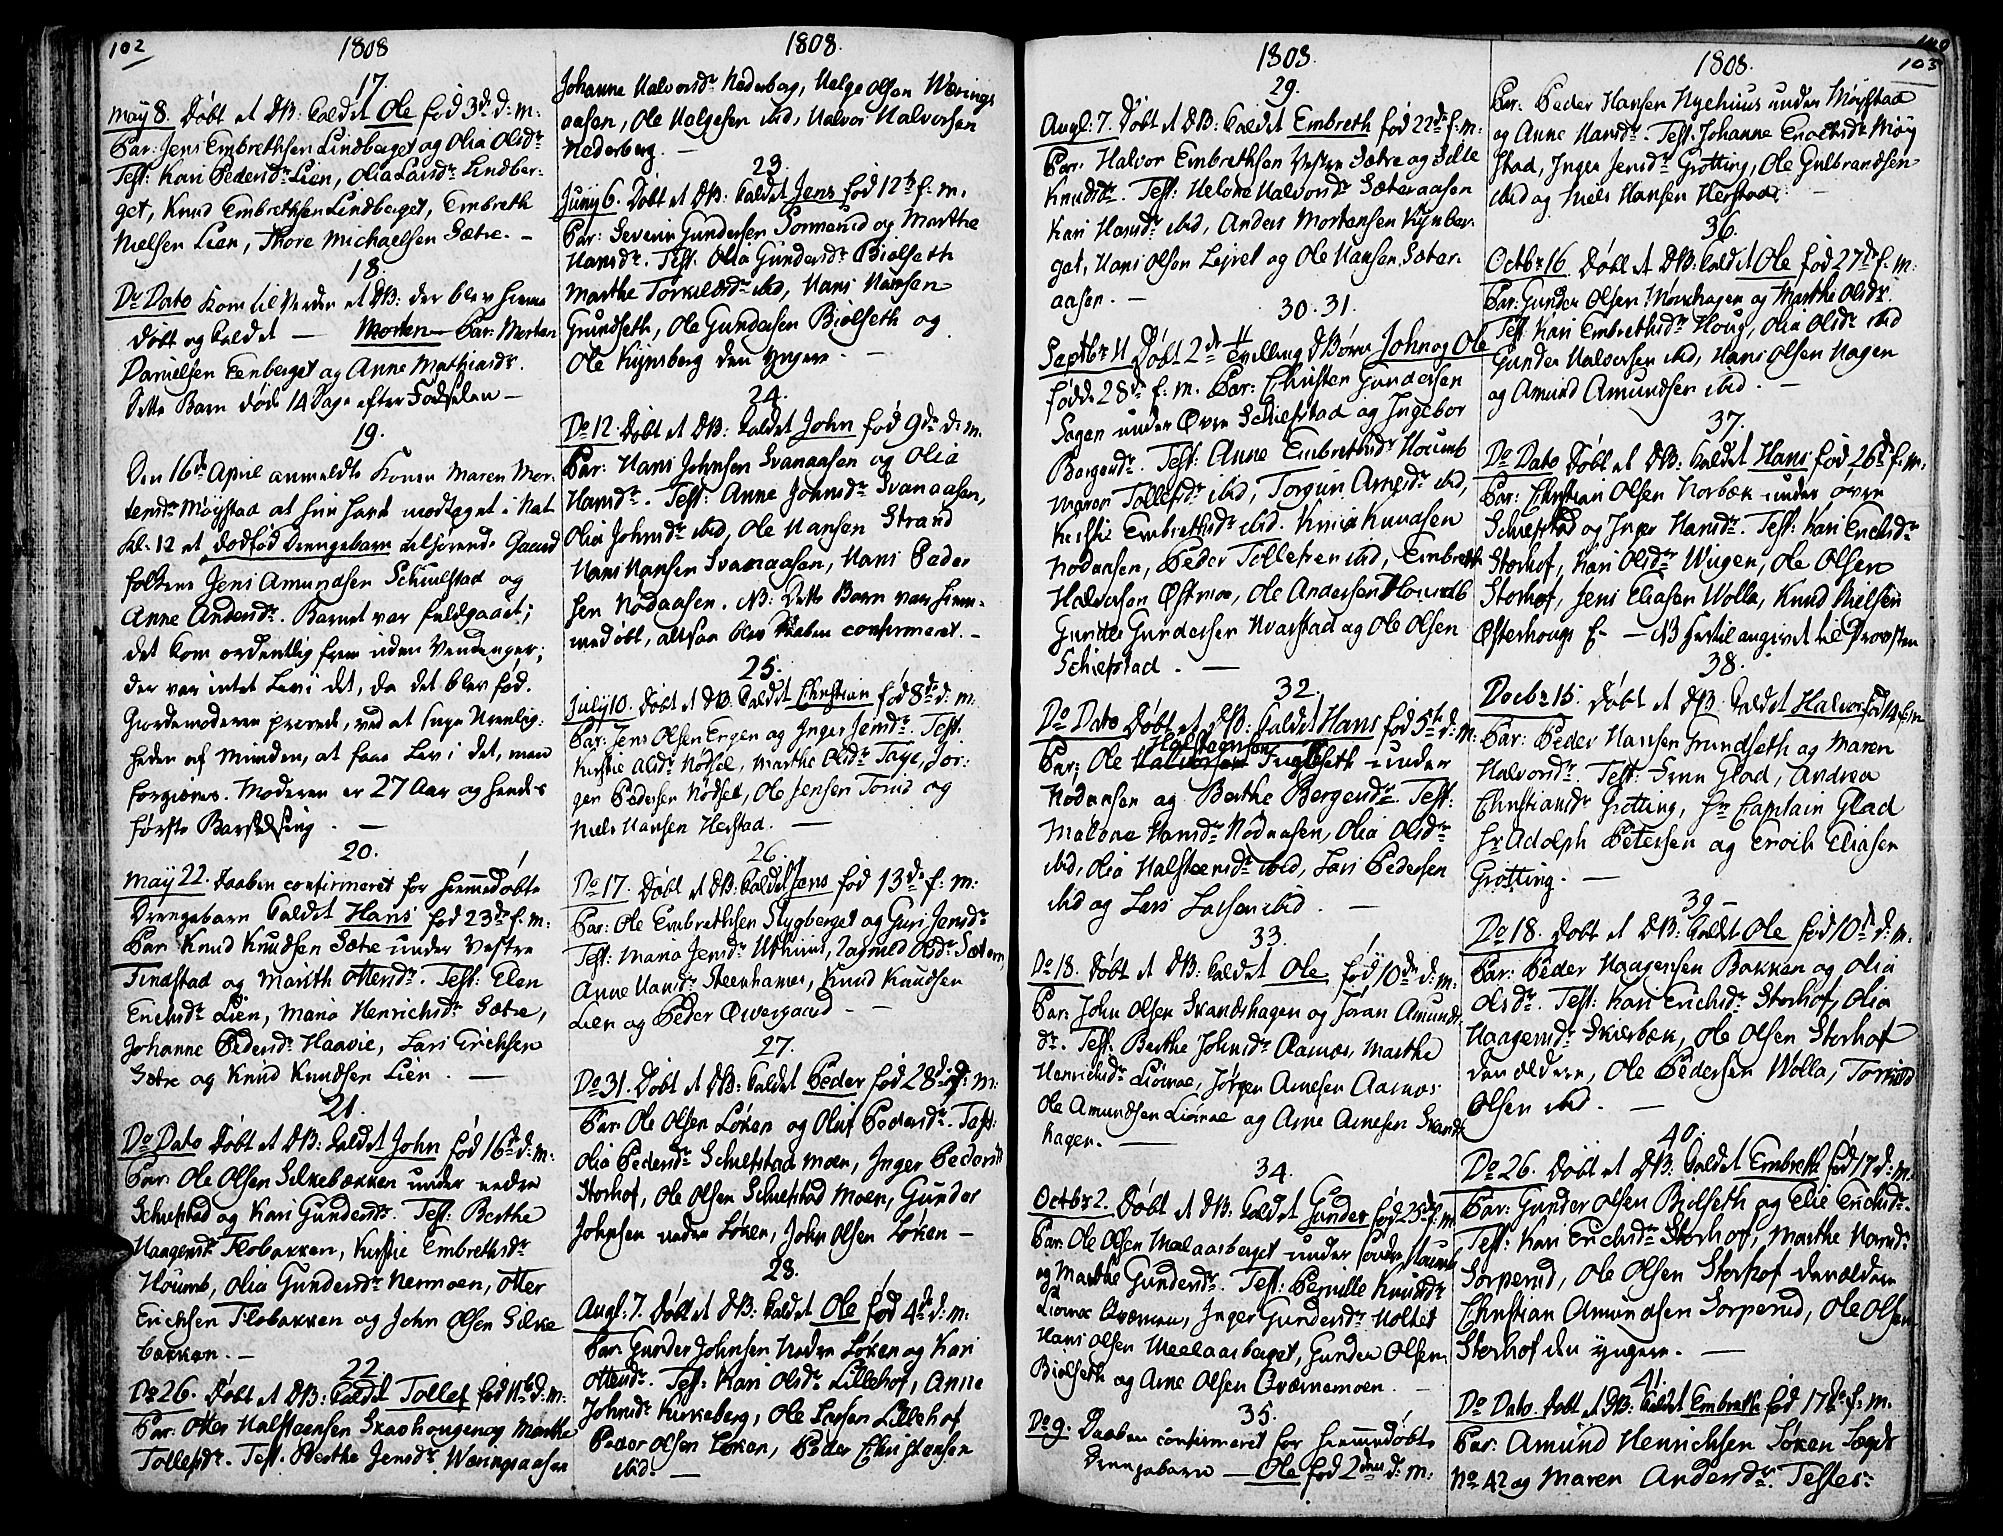 102
1808
17.
May 8. Døbt et DB: kaldet Ole fød 3de d: m:
Par: Jens Embrethsen Lindberget og Olia Olsdr
Test: Kari Pedersdr Lien, Olia Larsdr Lindber-
get, Knud Embrethsen Lindberget, Embreth
Nielsen Lien, Thore Michaelsen Sætre. —
18.
Do Dato Kom til Verden et DB: der blev hieme
døbt og kaldet — Morten — Par: Morten
Danielsen Eenberget og Anne Mathiasdr.
Dette Barn døde 14 Dage efter Fødselen —
19.
Den 16de April anmeldte Konen Maren Mor-
tensdr Møystad at hun havde modtaget i Nat
Kl. 12 et dødfød Drengebarn tilhørende Gaard
folkene Jens Amundsen Schiulstad og
Anne Andersdr. Barnet var fuldgaaet;
det kom ordentlig frem uden Vendinger;
der var intet Lev i det, da det blev fød.
Giordemoderen prøvede, ved at suge Ureenlig-
heden af Munden, at faae Lev i det, men
forgieves. Moderen er 27 Aar og hendes
første Barselseng. —
20.
May 22. Daaben confirmeret for hiemmedøbte
Drengebarn kaldet Hans fød 23de f: m:
Par: Knud Knudsen Sætre under Vestre
Findstad og Marith Ottersdr. Test: Elen
Erichsdr Lien, Maria Henrichsdr Sætre,
Johanne Pedersdr Haavie, Lars Erichsen
Sætre og Knud Knudsen Lien. —
21.
Do Dato Døbt et DB: kaldet John fød 16de d: m:
Par: Ole Olsen Silkebækken under nedre
Schiefstad og Kari Gundersdr. Test: Berthe
Haagensdr Flobakken, Kirstie Embrethsdr
Houmb, Olia Gundersdr Nermoen, Otter
Erichsen Flobakken og John Olsen Silke
bækken. —
22
Do 26. Døbt et DB: kaldet Tollef fød 11te d: m:
Par: Otter Halsteensen Skaahougen og Marthe
Tollefsdr. Test: Berthe Jensdr Wæringsaasen
1808.
Johanne Halvorsdr Nederberg, Helge Olsen Wærings
aasen, Ole Helgesen ibid, Halvor Halvorsen
Nederberg. —
23.
Juny 6. Døbt et DB: kaldet Jens fød 12te f: m.
Par: Severin Gundersen Sormerud og Marthe
Hansdr. Test: Olia Gundersdr Biølseth
Marthe Torkildsdr ibid, Hans Hansen
Grundseth, Ole Gundersen Biølseth og
Ole Kiynsberg den Yngere. —
24.
Do 12. Døbt et DB: kaldet John fød 9de d: m.
Par: Hans Johnsen Svanaasen og Olia
Hansdr. Test: Anne Johnsdr Svanaasen,
Olia Johnsdr ibid, Ole Hansen Strand
Hans Hansen Svanaasen, Hans Peder
sen Nodaasen. NB: Dette Barn var hiem-
medøbt, altsaa blev Daaben confirmeret. —
25.
July 10. Døbt et DB: kaldet Christian fød 8de d: m:
Par: Jens Olsen Ergen og Inger Jensdr. Test:
Kirstie Olsdr Nodsel, Marthe Olsdr Tage, Jør-
gen Pedersen Nodsel, Ole Jensen Torud og
Niels Hansen Herstad. —
26.
Do 17. Døbt et DB: kaldet Jens fød 13de f: m:
Par: Ole Embrethsen Stygberget og Guri Jensdr
Test: Maria Jensdr Uthuus, Ragnild Olsdr Sætern,
Anne Hansdr Steenhamer, Knud Knudsen
Lien og Peder Øvergaard —
27.
Do 31. Døbt et DB: kaldet Peder fød 28de d: m:
Par Ole Olsen Løken og Oluf Pedersdr. Test:
Olia Pedersdr Schiefstad moen, Inger Pedersdr
Storhof, Ole Olsen Schiefstad Moen, Gunder
Johnsen neden Løken, John Olsen Løken —
28.
Augt: 7. Døbt et DB: kaldet Ole fød 4de d: m:
Par: Gunder Johnsen Neden Løken og Kari
Ottersdr. Test: Kari Olsdr Lillehof, Anne
Johnsdr Kirkeberg, Ole Larsen Lillehof
Peder Olsen Løken, Peder Christensen
ibid. —
1808.
29.
Augt: 7. Døbt et DB: kaldet Embreth fød 22de f: m.
Par: Halvor Embrethsen Vestre Sætre og Idle
Knudsdr. Test: Helene Halvorsdr Sæteraasen
Kari Hansdr ibid, Anders Mortensen Kiynber-
get, Hans Olsen Lejret og Ole Hansen Sæter-
aasen. —
30. 31.
Septbr 11 Døbt 2de Tvilling DBørn John og Ole
fødde 28de f: m. Par: Christen Gundersen
Sagen under Øvre Schiefstad og Ingebor
Bergersdr. Test: Anne Embrethsdr Houmb
Maren Tollefsdr ibid, Torgun Arnesdr ibid,
Kirstie Embrethsdr ibid. Knud Knudsen
Nodansen, Peder Tollefsen ibid, Embreth
Halvorsen Østmoe, Ole Andersen Houmb
Gunder Gundersen Kvarstad og Ole Olsen
Schiefstad. —
32.
Do Dato Døbt et DB: kaldet Hans fød 5te d: m:
Par: Ole Halvorsen Halsteensen Fugleseth under
Nodansen og Berthe Bergersdr. Test:
Malene Hansdr Nodaasen, Olia Olsdr
ibid, Olia Halsteensdr ibid, Lars Pedersen
ibid og Lars Larsen ibid. —
33.
Do 18. Døbt et DB: kaldet Ole fød 10de d: m:
Par: John Olsen Skandshagen og Jøran Amunds
dr. Test: Berthe Johnsdr Aamoe, Marthe
Henrichsdr Liømoe, Jørgen Arnesen Aamoe
Ole Amundsen Liømoe og Arne Arnesen Skands
hagen. —
34.
Octbr 2. Døbt et DB: kaldet Gunder fød 23de f: m.
Par: Ole Olsen Melaasberget under søndre Houmb
og Marthe Gundersdr. Test: Pernille Knudsdr
Liømoe Qvernen, Inger Gundersdr Holtet
Hans Olsen Meelaasberget, Gunder Olsen
Biølseth og Arne Olsen Qvernemoen. —
35.
Do 9. Daaben confirmeret for hiemmedøbte
Drengebarn — Ole fød 2den d: m:
1808.
103
Par: Peder Hansen Nyehuus under Møystad
og Anne Hansdr. Test: Johanne Enochsdr Møy
stad, Inger Jensdr Grøtting, Ole Gulbrandsen
ibid og Niels Hansen Herstad. —
36.
Octbr 16. Døbt et DB: kaldet Ole fød 27de f: m:
Par: Gunder Olsen Morshagen og Marthe Olsdr.
Test: Kari Embrethsdr Houg, Olia Olsdr ibid
Gunder Halvorsen ibid, Hans Olsen Hagen
og Amund Amundsen ibid. —
37.
Do Dato Døbt et DB: kaldet Hans fød 26de f: m:
Par: Christian Olsen Norbæk under øvre
Schiefstad og Inger Hansdr. Test: Kari Erichsdr
Storhof, Kari Olsdr Wiigen, Ole Olsen
Storhof, Jens Eliasen Wolla, Knud Nielsen
Østerhougs E. — NB hertil angivet til Provsten
38.
Decbr 15. Døbt et DB: kaldet Halvor fød 14 f: m
Par: Peder Hansen Grundseth og Maren
Halvorsdr. Test: Frue Glad, Andrea
Christiansdr Grøtting, Hr Captain Glad
Hr Adolph Petersen og Enoch Eliasen
Grøtting. —
39 —
Do 18. Døbt et DB: kaldet Ole fød 10de d: m.
Par: Peder Haagensen Bakken og Olia
Olsdr. Test: Kari Erichsdr Storhof, Olia
Haagensdr Skierbæk, Ole Olsen Storhof
den ældere, Ole Pedersen Wolla, Torkild
Olsen ibid. —
40.
Do 26. Døbt et DB: kaldet Embreth fød 17 d: m.
Par: Gunder Olsen Biølseth og Elie Erichsdr.
Test: Kari Erichsdr Storhof, Marthe Hansdr
Sorperud, Ole Olsen Storhof den ældere
Christian Amundsen Sorperud, Ole Olsen
Storhof den yngere. —
41.
Do Dato. Døbt et DB: kaldet Embreth fød 17de f: m.
Par: Amund Henrichsen Løken Lægds
No 42 og Maren Andersdr. Testes: